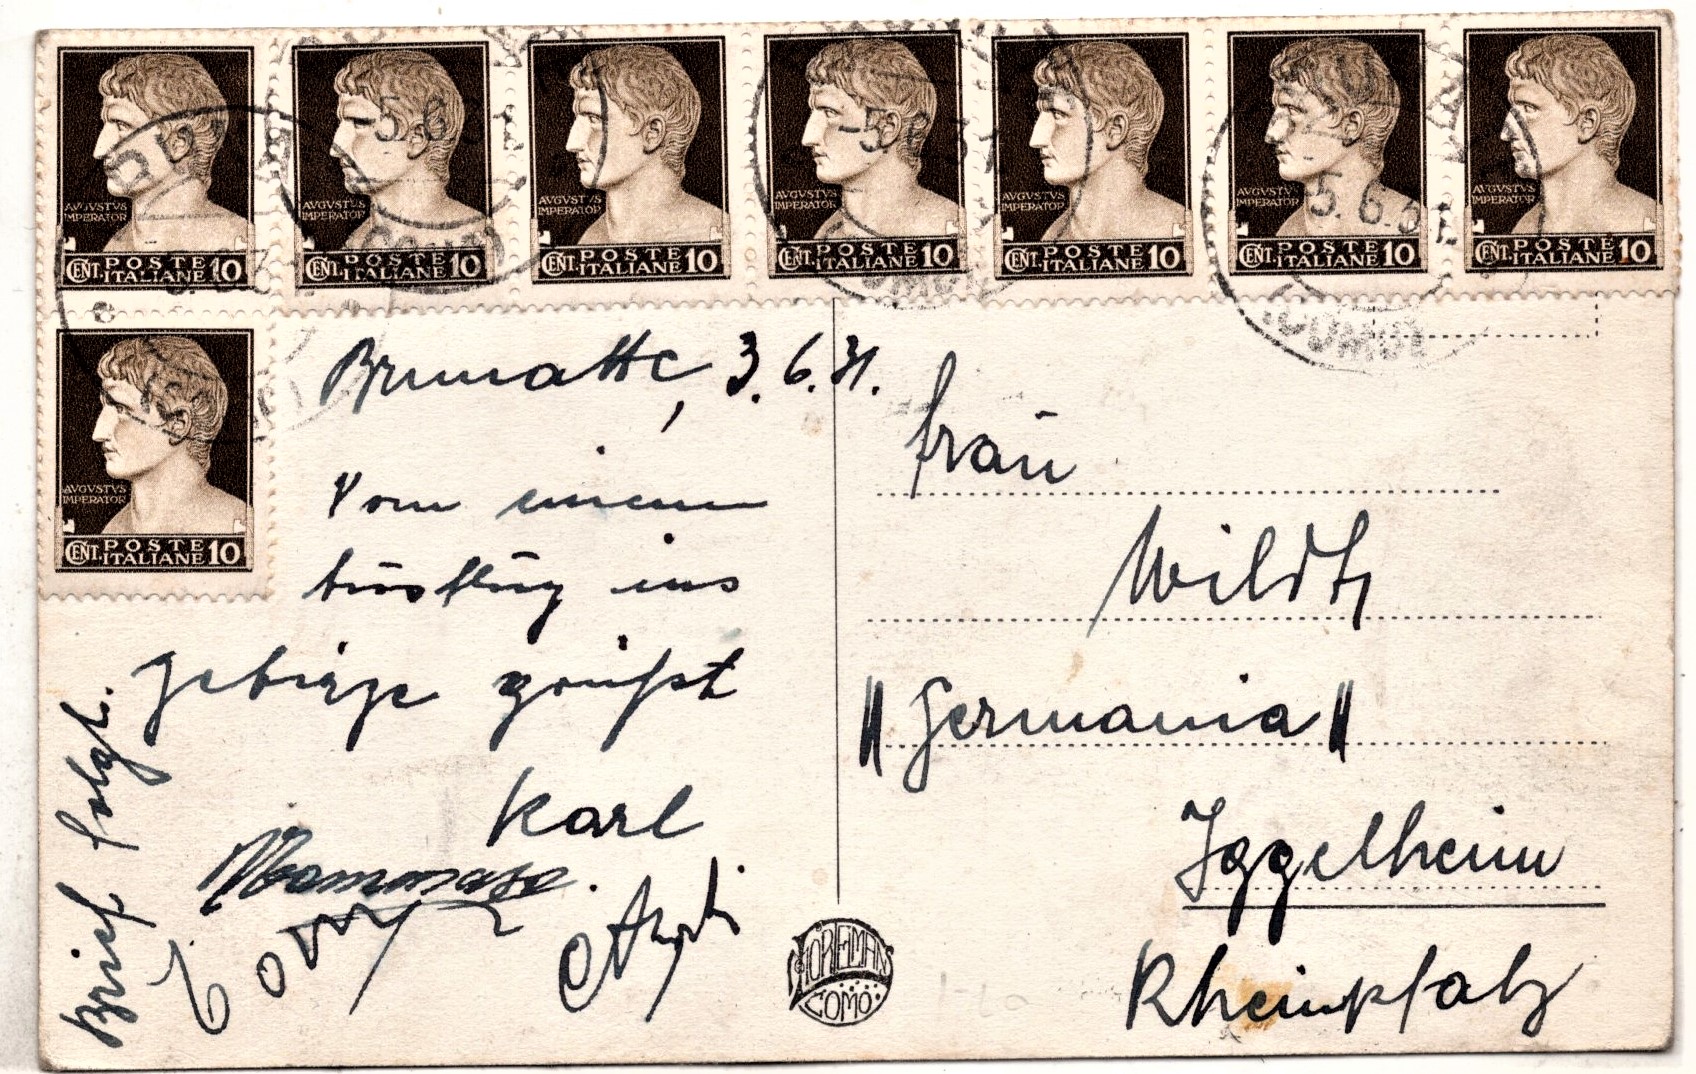 AVGVSTVS IMPERATOR
CENT. POSTE ITALIANE 10
AVGVSTVS IMPERATOR
CENT. POSTE ITALIANE 10
AVGVSTVS IMPERATOR
CENT. POSTE ITALIANE 10
AVGVSTVS IMPERATOR
CENT. POSTE ITALIANE 10
AVGVSTVS IMPERATOR
CENT. POSTE ITALIANE 10
AVGVSTVS IMPERATOR
CENT. POSTE ITALIANE 10
AVGVSTVS IMPERATOR
CENT. POSTE ITALIANE 10
AVGVSTVS IMPERATOR
CENT. POSTE ITALIANE 10
5.6.31
(COMO)
Brunatte, 3.6.31.
Vom einem
Ausflug ins
Gebirge grüßt
Karl
Brief folgt.
COMO
Frau
Wildt
"Germania"
Iggelheim
Rheinpfalz